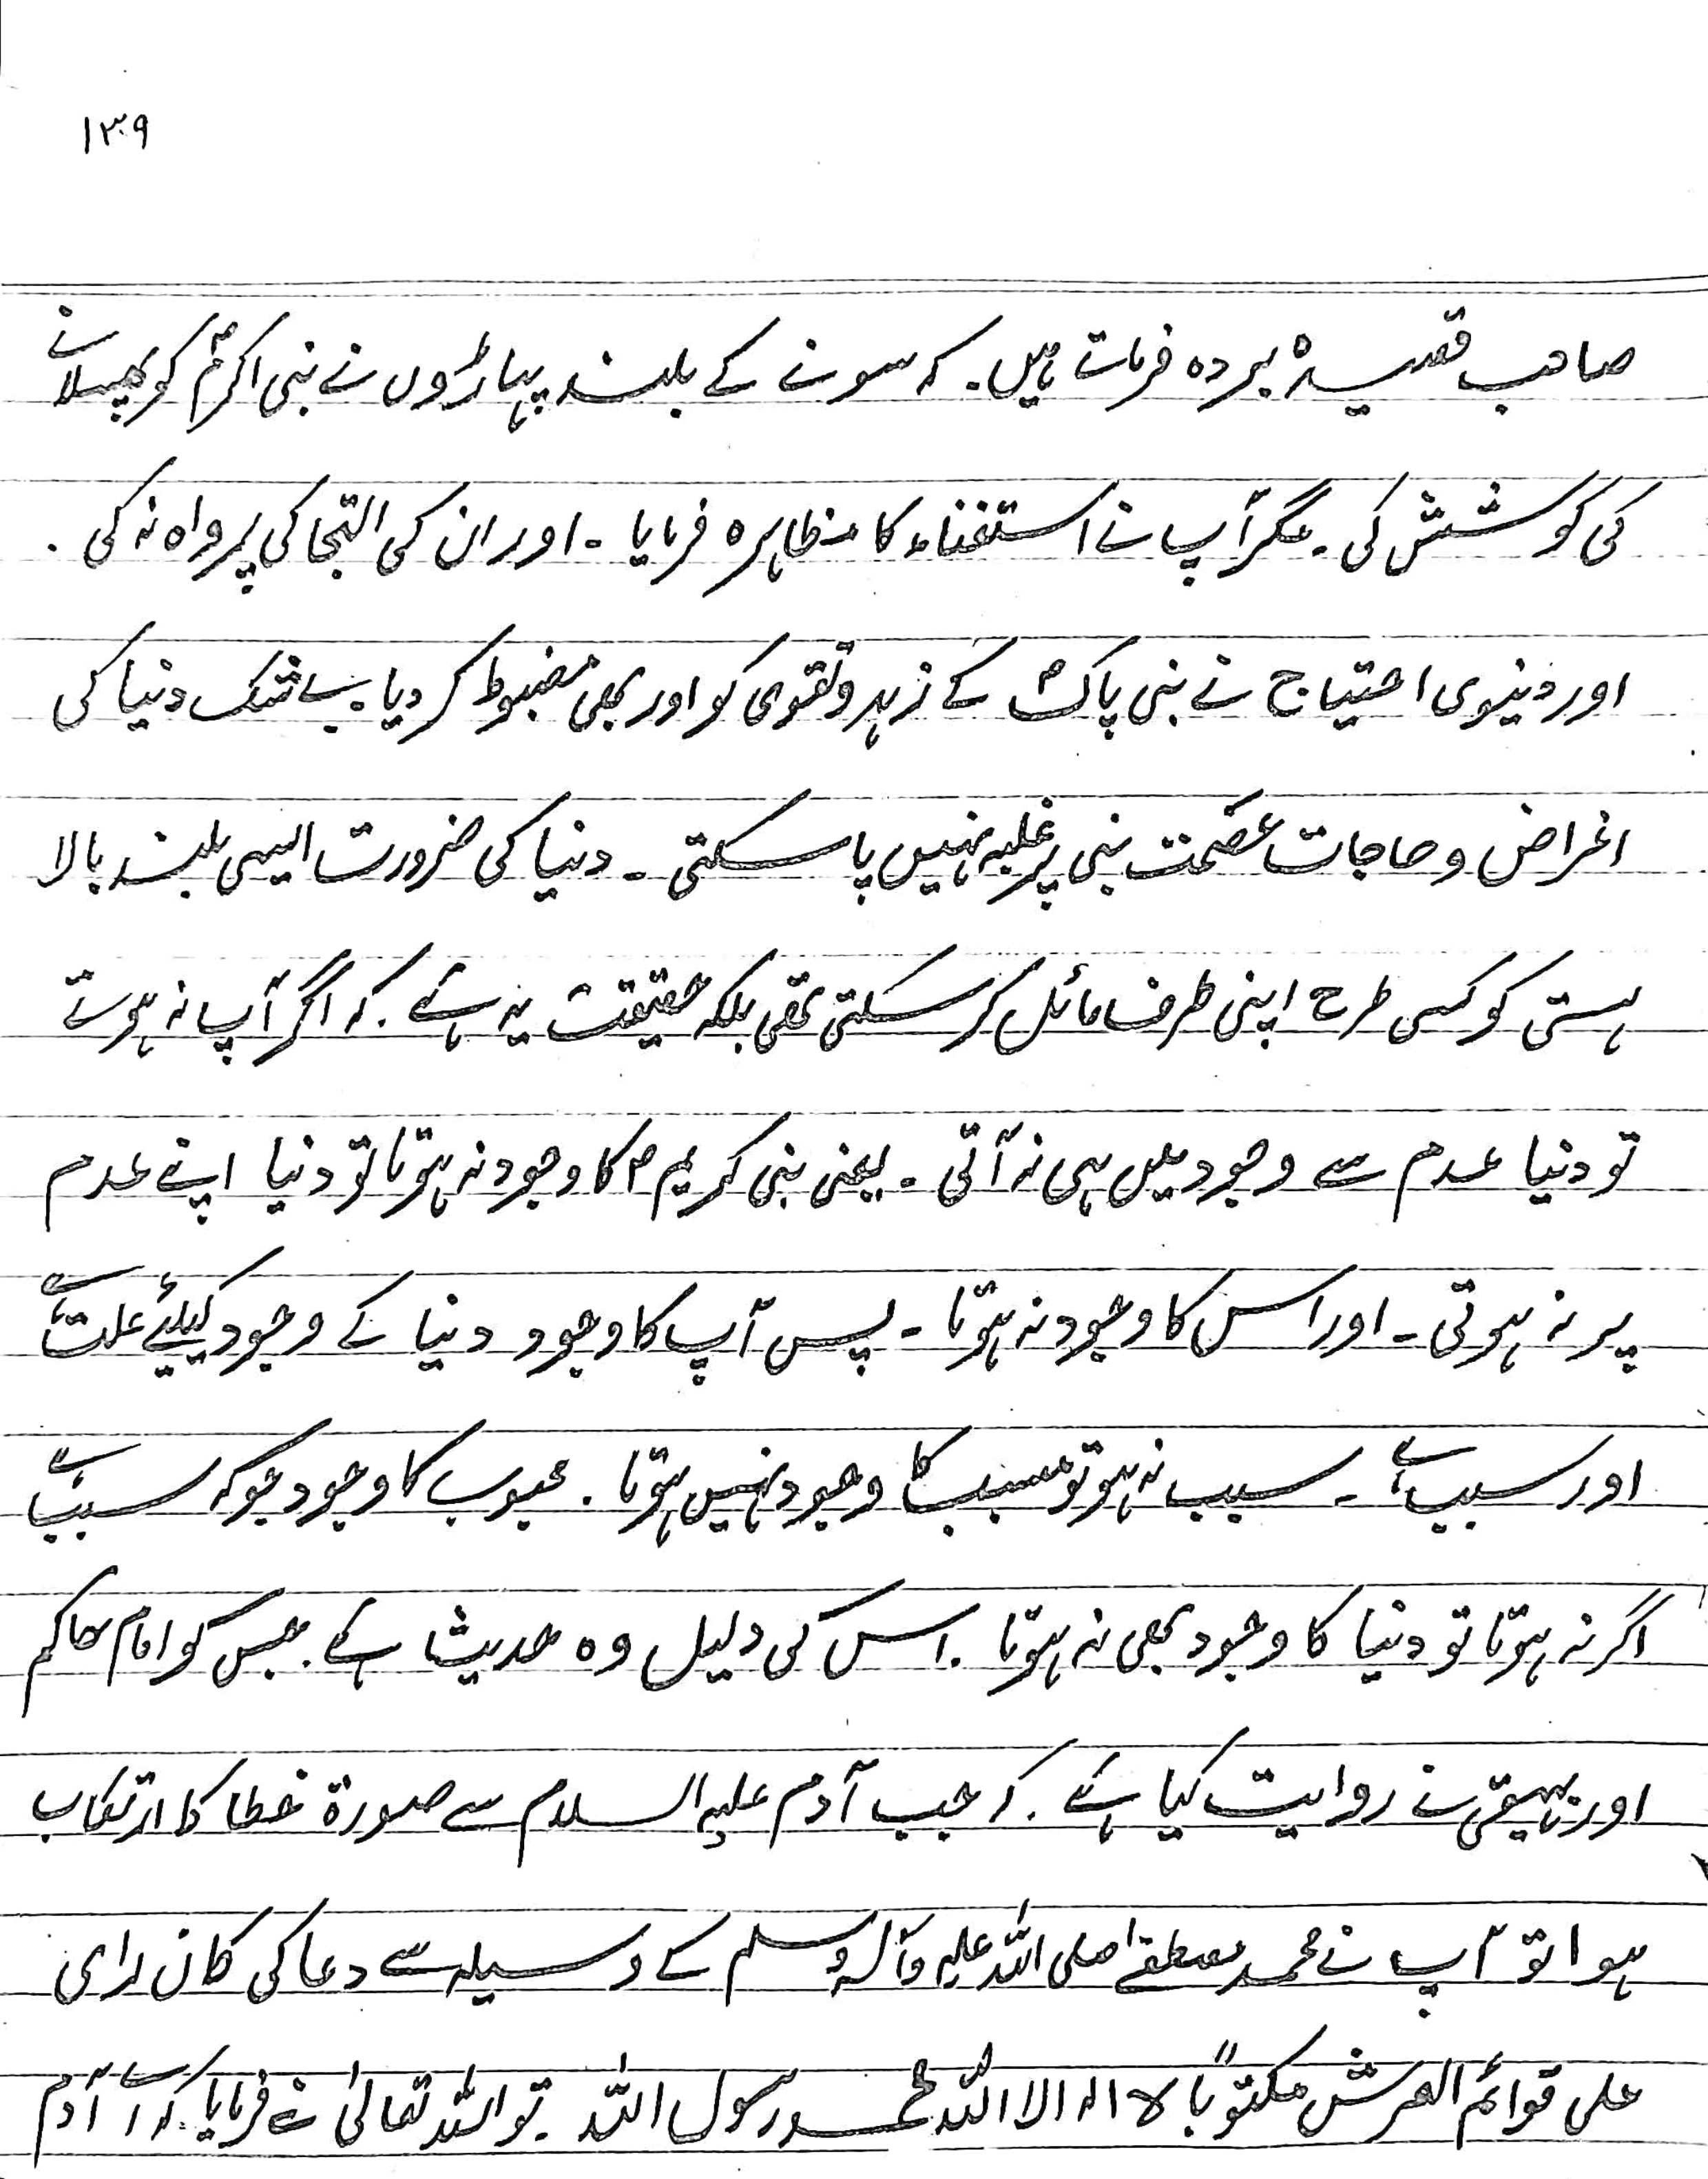 ۱۳۹
صاحب قصیدہ بردہ فرماتے ہیں۔ کہ سونے کے بلند پہاڑوں نے نبی اکرمؐ کو پھسلانے
کی کوشش کی۔ مگر آپ نے استغناء کا مظاہرہ فرمایا۔ اور ان کی التجا کی پرواہ نہ کی۔
اور دنیوی احتیاج نے نبی پاکؐ کے زہد و تقوی کو اور بھی مضبوط کر دیا۔ بے شک دنیا کی
اغراض و حاجات عصمت نبی پر غلبہ نہیں پا سکتی۔ دنیا کی ضرورت ایسی بلند بالا
ہستی کو کس طرح اپنی طرف مائل کر سکتی تھی بلکہ حقیقت یہ ہے۔ کہ اگر آپ نہ ہوتے
تو دنیا عدم سے وجود میں ہی نہ آتی۔ یعنی نبی کریم ؐ کا وجود نہ ہوتا تو دنیا اپنے عدم
پر نہ ہوتی۔ اور اس کا وجود نہ ہوتا۔ پس آپ کا وجود دنیا کے وجود کیلئے علت ہے
اور سبب ہے۔ سبب نہ ہو تو مسبب کا وجود نہیں ہوتا۔ محبوب کا وجود جو کہ سبب ہے
اگر نہ ہوتا تو دنیا کا وجود بھی نہ ہوتا۔ اس کی دلیل وہ حدیث ہے۔ جس کو امام حاکم
اور بیہقی نے روایت کیا ہے۔ کہ جب آدم علیہ السلام سے صورۃ خطا کا ارتکاب
ہوا تو آپ نے محمد مصطفےٰ صلی اللہ علیہ وآلہ وسلم کے وسیلہ سے دعا کی کان رای
علی قوائم العرش مکتوباً لا الہ الا اللہ محمد رسول اللہ۔ تو اللہ تعالیٰ نے فرمایا کہ اے آدم